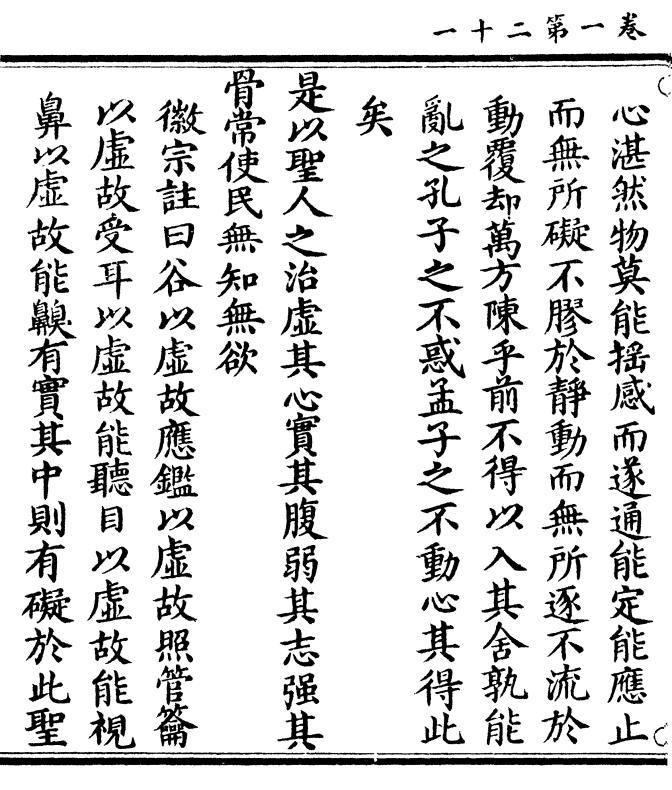 卷一第二十一
心湛然物莫能搖感而遂通能定能應止
而無所礙不膠於靜動而無所逐不流於
動覆却萬方陳乎前不得以入其舍孰能
亂之孔子之不惑孟子之不動心其得此
矣
是以聖人之治虛其心實其腹弱其志强其
骨常使民無知無欲
徽宗註曰谷以虛故應鑑以虛故照管籥
以虛故受耳以虛故能聽目以虛故能視
鼻以虛故能齅有實其中則有礙於此聖